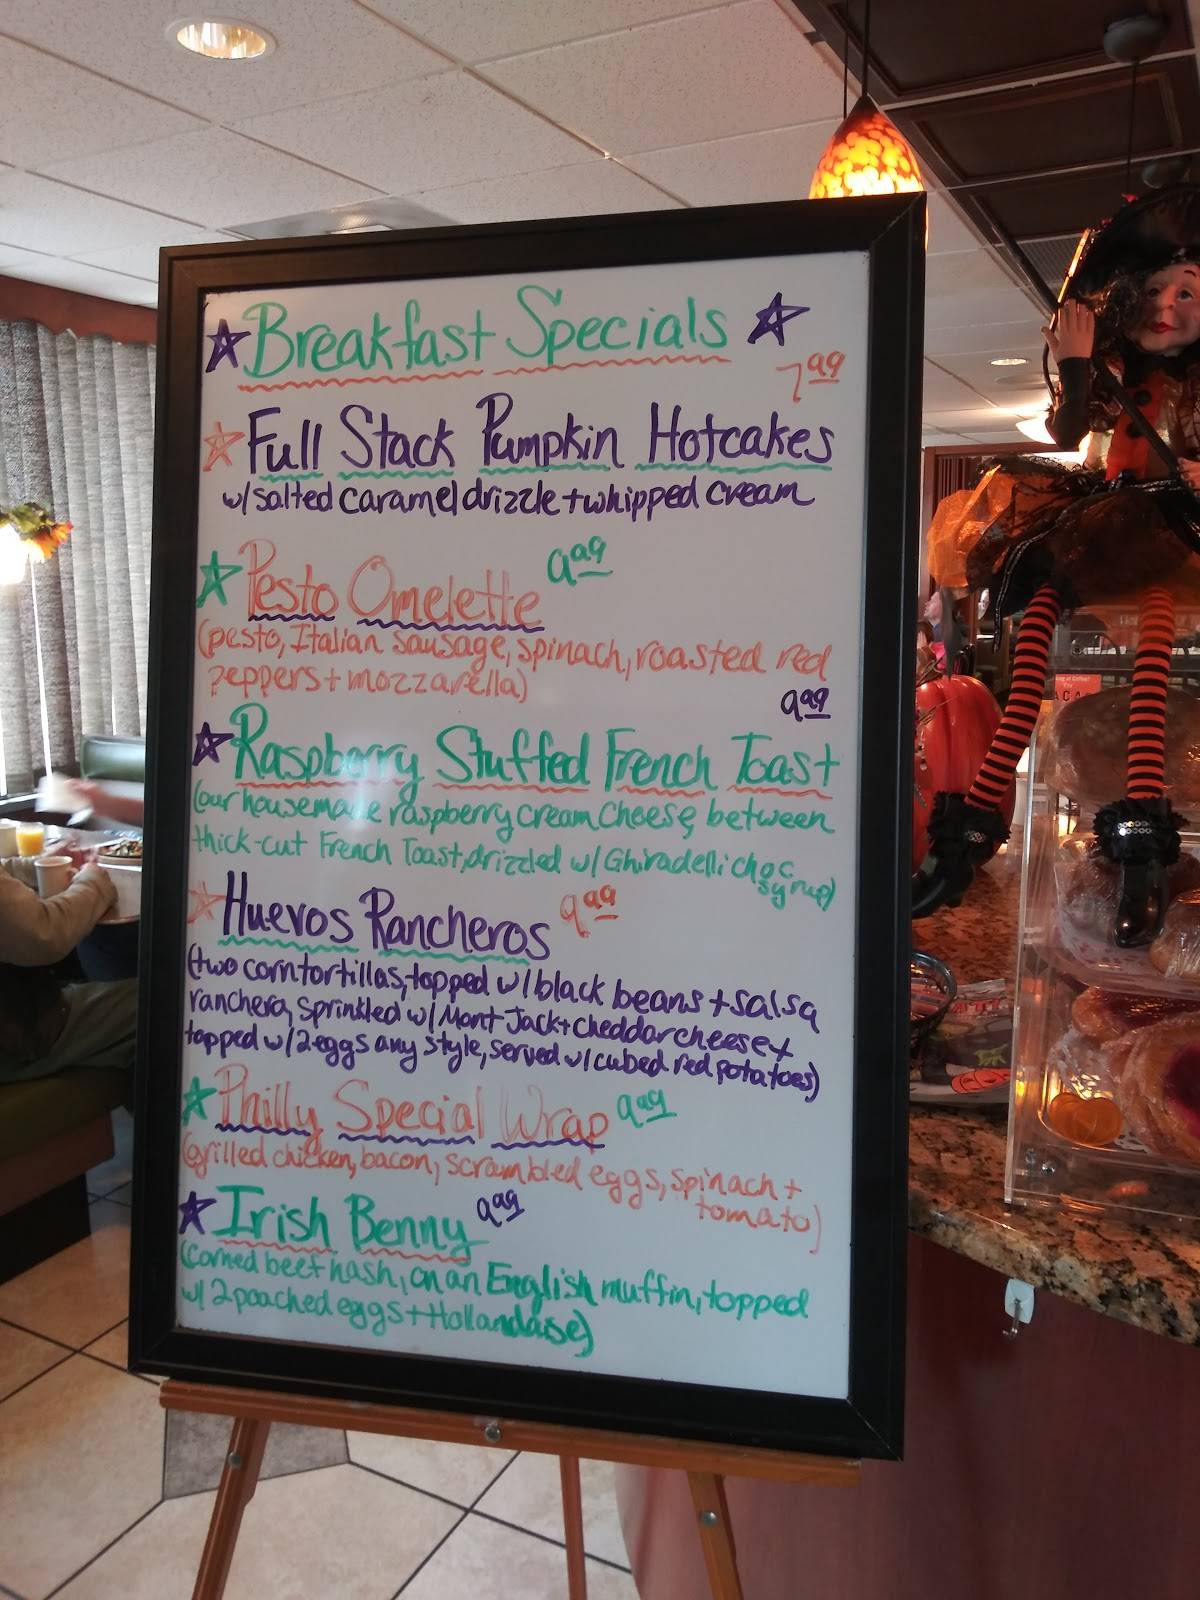 Breakfast Specials
7.99
Full Stack Pumpkin Hotcakes
w/salted caramel drizzle + whipped cream
Pesto Omelette 9.99
(pesto, Italian sausage, spinach, roasted red
peppers + mozzarella)
9.99
Raspberry Stuffed French Toast
(our housemade raspberry cream cheese, between
thick-cut French Toast, drizzled w/ Ghiradelli choc
syrup)
Huevos Rancheros 9.99
(two corn tortillas, topped w/ black beans + salsa
ranchera, sprinkled w/ Mont Jack + cheddar cheese +
topped w/ 2 eggs any style, served w/ cubed red potatoes)
Philly Special Wrap 9.99
(grilled chicken, bacon, scrambled eggs, spinach +
tomato)
Irish Benny 9.99
(corned beef hash, on an English muffin, topped
w/ 2 poached eggs + Hollandaise)